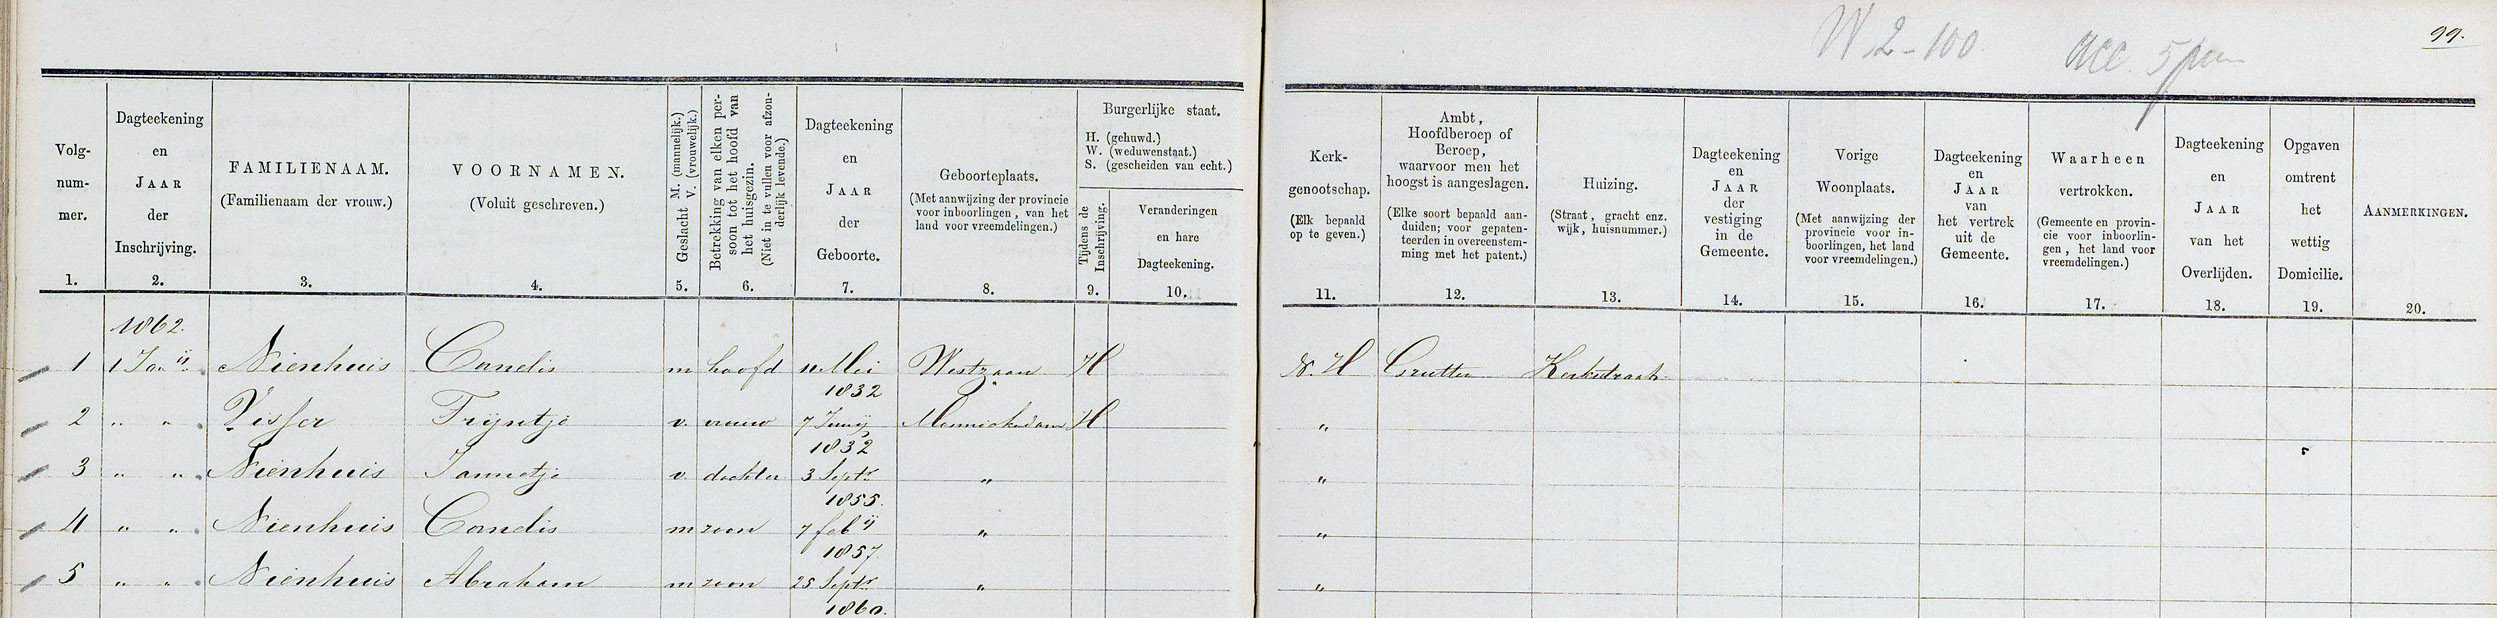 W 2-100
acc.
99.
Volg-
num-
mer.
1.
Dagteekening
en
JAAR
der
Inschrijving.
2.
FAMILIENAAM.
(Familienaam der vrouw.)
3.
VOORNAMEN.
(Voluit geschreven.)
4.
Geslacht M. (mannelijk.)
V. (vrouwelijk.)
5.
Betrekking van elken per-
soon tot het hoofd van
het huisgezin.
(Niet in te vullen voor afzon-
derlijk levende.)
6.
Dagteekening
en
JAAR
der
Geboorte.
7.
Geboorteplaats.
(Met aanwijzing der provincie
voor inboorlingen, van het
land voor vreemdelingen.)
8.
Burgerlijke staat.
H. (gehuwd.)
W. (weduwenstaat.)
S. (gescheiden van echt.)
Tijdens de
Inschrijving.
9.
Veranderingen
en hare
Dagteekening.
10.
Kerk-
genootschap.
(Elk bepaald
op te geven.)
11.
Ambt,
Hoofdberoep of
Beroep,
waarvoor men het
hoogst is aangeslagen.
(Elke soort bepaald aan-
duiden; voor gepaten-
teerden in overeenstem-
ming met het patent.)
12.
Huizing.
(Straat, gracht enz.
wijk, huisnummer.)
13.
Dagteekening
en
JAAR
der
vestiging
in de
Gemeente.
14.
Vorige
Woonplaats.
(Met aanwijzing der
provincie voor in-
boorlingen, het land
voor vreemdelingen.)
15.
Dagteekening
en
JAAR
van
het vertrek
uit de
Gemeente.
16.
Waarheen
vertrokken.
(Gemeente en provin-
cie voor inboorlin-
gen, het land voor
vreemdelingen.)
17.
Dagteekening
en
JAAR
van het
Overlijden.
18.
Opgaven
omtrent
het
wettig
Domicilie.
19.
AANMERKINGEN.
20.
1862.
1 1 Janij Nienhuis Cornelis m hoofd 11 Mei Westzaan H N. H Grutter Kerkstraat
1832
2 " " Visser Trijntje v. vrouw 7 Junij Monnickendam H "
1832
3 " " Nienhuis Jannetje v dochter 3 Septr " "
1855.
4 " " Nienhuis Cornelis m zoon 7 febij " "
1857
5 " " Nienhuis Abraham m zoon 25 Septr " "
1860.